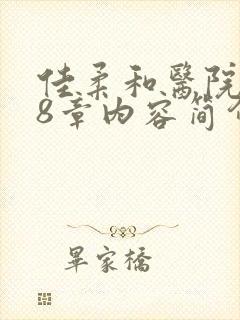 佳柔和醫院
8章内容简介
畢家橋